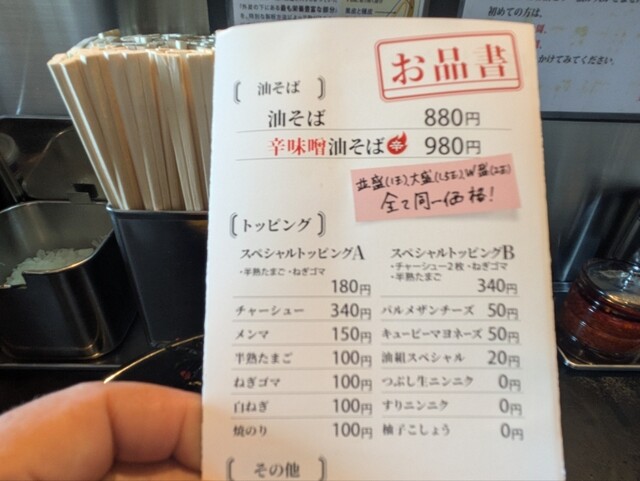 お品書
油そば
油そば 880円
辛味噌油そば 辛 980円
並盛(1玉)、大盛(1.5玉)、W盛(2玉)
全て同一価格!
トッピング
スペシャルトッピングA
・半熟たまご ・ねぎゴマ
180円
チャーシュー 340円
メンマ 150円
半熟たまご 100円
ねぎゴマ 100円
白ねぎ 100円
焼のり 100円
スペシャルトッピングB
・チャーシュー2枚 ・ねぎゴマ
・半熟たまご
340円
パルメザンチーズ 50円
キューピーマヨネーズ 50円
油組スペシャル 20円
つぶし生ニンニク 0円
すりニンニク 0円
柚子こしょう 0円
その他
初めての方は、
かけてみてください。